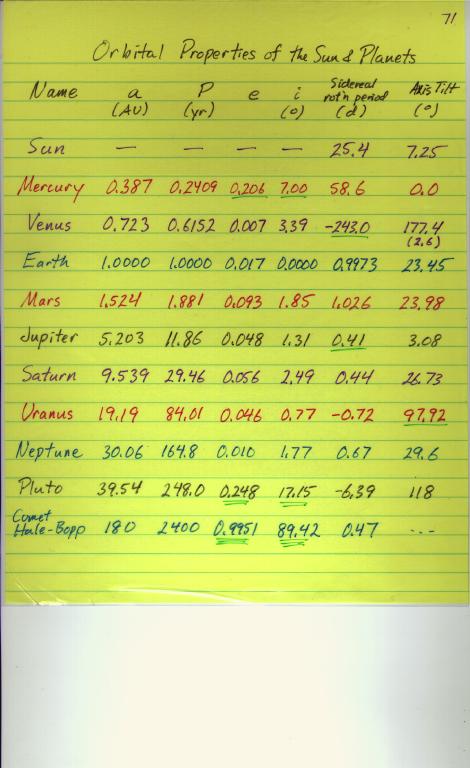 71
Orbital Properties of the Sun & Planets
Name a P e i Sidereal rot'n period Axis Tilt
(AU) (yr) (o) (d) (o)
Sun — — — — 25.4 7.25
Mercury 0.387 0.2409 0.206 7.00 58.6 0.0
Venus 0.723 0.6152 0.007 3.39 -243.0 177.4
(2.6)
Earth 1.0000 1.0000 0.017 0.0000 0.9973 23.45
Mars 1.524 1.881 0.093 1.85 1.026 23.98
Jupiter 5.203 11.86 0.048 1.31 0.41 3.08
Saturn 9.539 29.46 0.056 2.49 0.44 26.73
Uranus 19.19 84.01 0.046 0.77 -0.72 97.92
Neptune 30.06 164.8 0.010 1.77 0.67 29.6
Pluto 39.54 248.0 0.248 17.15 -6.39 118
Comet
Hale-Bopp 180 2400 0.9951 89.42 0.47 ---